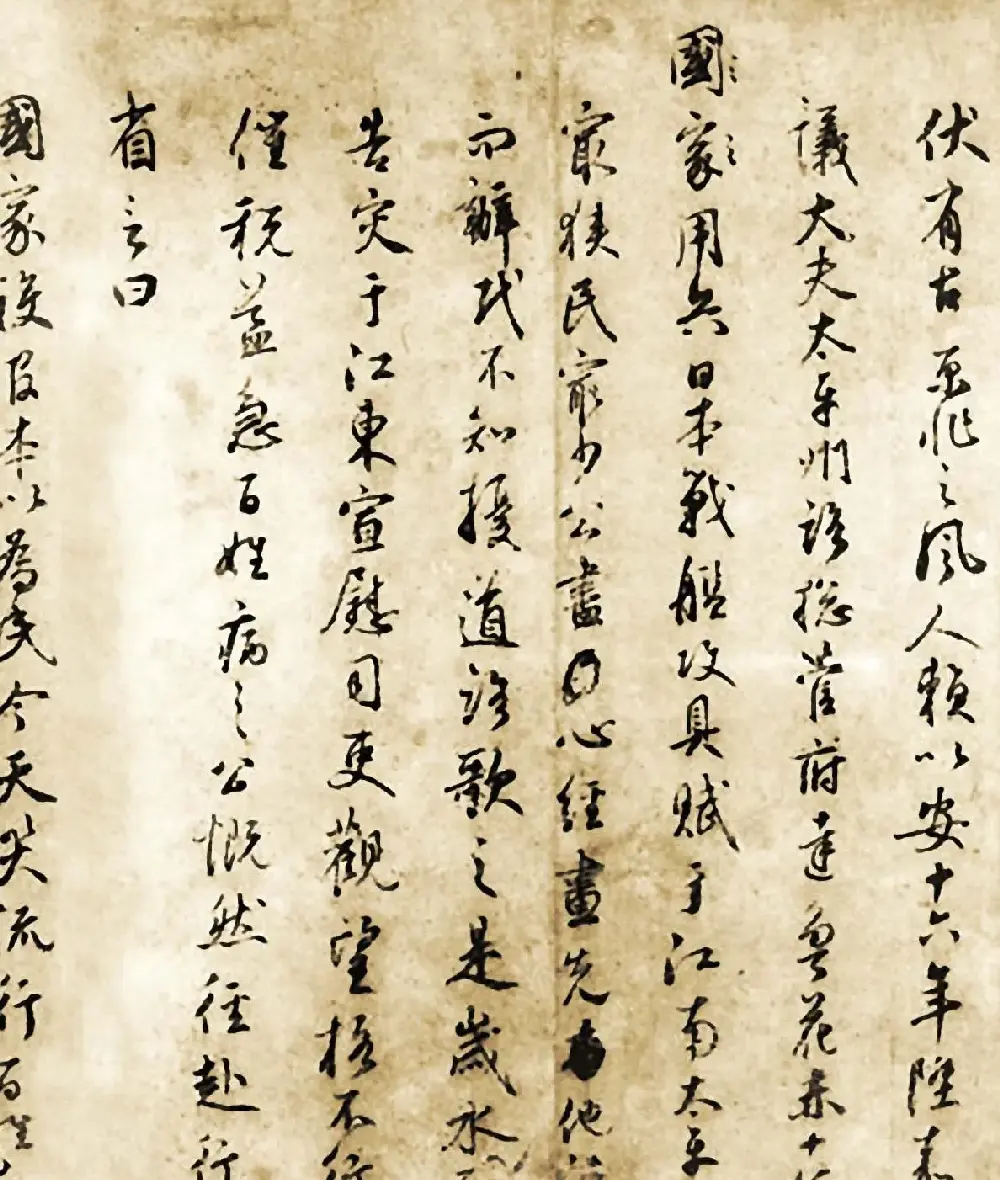 伏有古之風人賴以安十六年陞嘉
議大夫太平州路總管府達魯花赤十
國家用兵日本戰艦攻具賦于江南太平
最狹民最少公盡心經畫先他
而辦民不知擾道路歌之是歲水
告灾于江東宣慰司吏觀望格不行
催税益急百姓病之公慨然徑赴行
省言曰
國家設官本以為民今天灾流行百姓